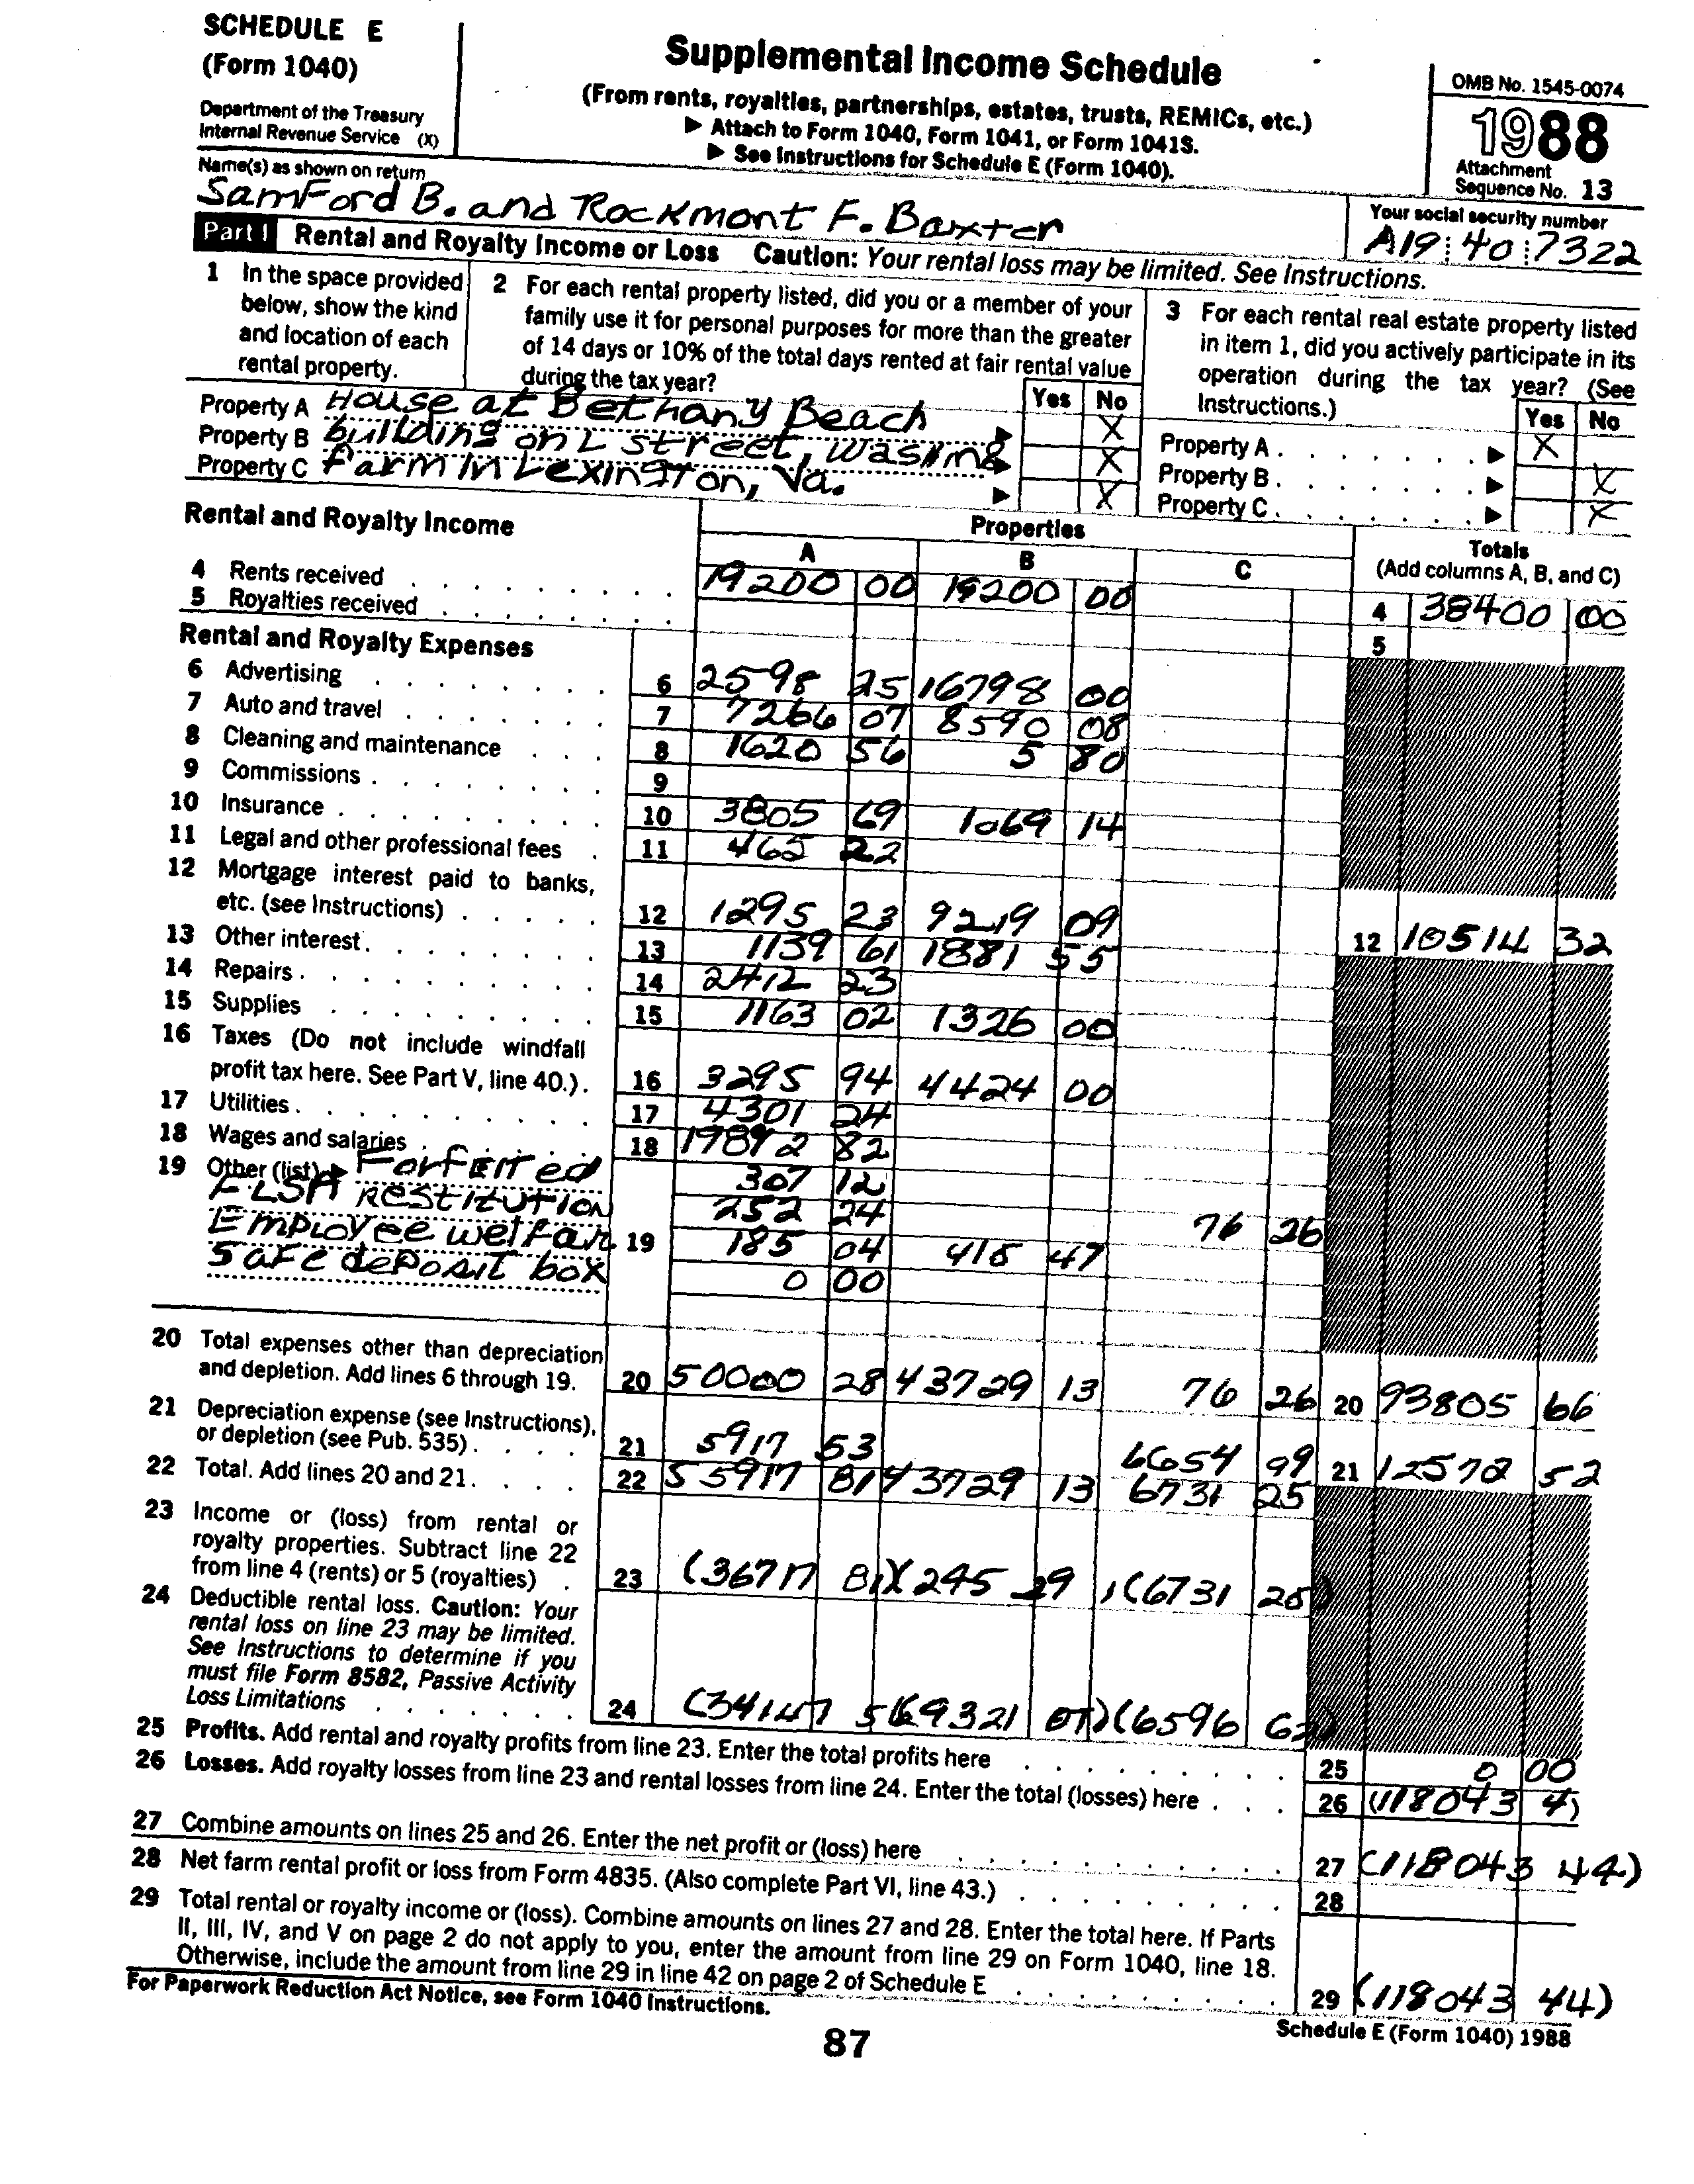 SCHEDULE E
(Form 1040)
Department of the Treasury
Internal Revenue Service (X)
Supplemental Income Schedule
(From rents, royalties, partnerships, estates, trusts, REMICs, etc.)
▶ Attach to Form 1040, Form 1041, or Form 1041S.
▶ See Instructions for Schedule E (Form 1040).
OMB No. 1545-0074
1988
Attachment
Sequence No. 13
Name(s) as shown on return
Samford B. and Rockmont F. Baxter
Your social security number
A19 40 7322
Part I Rental and Royalty Income or Loss Caution: Your rental loss may be limited. See Instructions.
1 In the space provided
below, show the kind
and location of each
rental property.
2 For each rental property listed, did you or a member of your
family use it for personal purposes for more than the greater
of 14 days or 10% of the total days rented at fair rental value
during the tax year?
Yes No
3 For each rental real estate property listed
in item 1, did you actively participate in its
operation during the tax year? (See
Instructions.)
Yes No
Property A House at Bethany Beach ▶ X
Property B building on L street, Wasing ▶ X
Property C Farm in Lexington, Va. ▶ X
Property A . . . . . . . ▶ X
Property B . . . . . . . ▶ X
Property C . . . . . . . ▶ X
Rental and Royalty Income
Properties
A B C
Totals
(Add columns A, B, and C)
4 Rents received 19200 00 19200 00 4 38400 00
5 Royalties received 5
Rental and Royalty Expenses
6 Advertising 6 2598 25 16798 00
7 Auto and travel 7 7266 07 8590 08
8 Cleaning and maintenance 8 1620 56 5 80
9 Commissions 9
10 Insurance 10 3805 69 1069 14
11 Legal and other professional fees 11 465 22
12 Mortgage interest paid to banks,
etc. (see Instructions) 12 1295 23 9219 09 12 10514 32
13 Other interest 13 1139 61 1881 55
14 Repairs 14 2412 23
15 Supplies 15 1163 02 1326 00
16 Taxes (Do not include windfall
profit tax here. See Part V, line 40.) 16 3295 94 4424 00
17 Utilities 17 4301 24
18 Wages and salaries 18 19892 82
19 Other (list) ▶ Forfeited 307 12
FLSA RESTITUTION 252 24 76 26
Employee welfar 19 185 04 415 47
Safe deposit box 0 00
20 Total expenses other than depreciation
and depletion. Add lines 6 through 19. 20 50000 28 43729 13 76 26 20 93805 66
21 Depreciation expense (see Instructions),
or depletion (see Pub. 535) 21 5917 53 6654 99 21 12572 52
22 Total. Add lines 20 and 21 22 55917 81 43729 13 6731 25
23 Income or (loss) from rental or
royalty properties. Subtract line 22
from line 4 (rents) or 5 (royalties) 23 (36717 81)(245 29 (6731 25)
24 Deductible rental loss. Caution: Your
rental loss on line 23 may be limited.
See Instructions to determine if you
must file Form 8582, Passive Activity
Loss Limitations 24 (34147 (6596
25 Profits. Add rental and royalty profits from line 23. Enter the total profits here 25 0 00
26 Losses. Add royalty losses from line 23 and rental losses from line 24. Enter the total (losses) here 26 (118043 4)
27 Combine amounts on lines 25 and 26. Enter the net profit or (loss) here 27 (118043 44)
28 Net farm rental profit or loss from Form 4835. (Also complete Part VI, line 43.) 28
29 Total rental or royalty income or (loss). Combine amounts on lines 27 and 28. Enter the total here. If Parts
II, III, IV, and V on page 2 do not apply to you, enter the amount from line 29 on Form 1040, line 18.
Otherwise, include the amount from line 29 in line 42 on page 2 of Schedule E 29 (118043 44)
For Paperwork Reduction Act Notice, see Form 1040 Instructions.
Schedule E (Form 1040) 1988
87